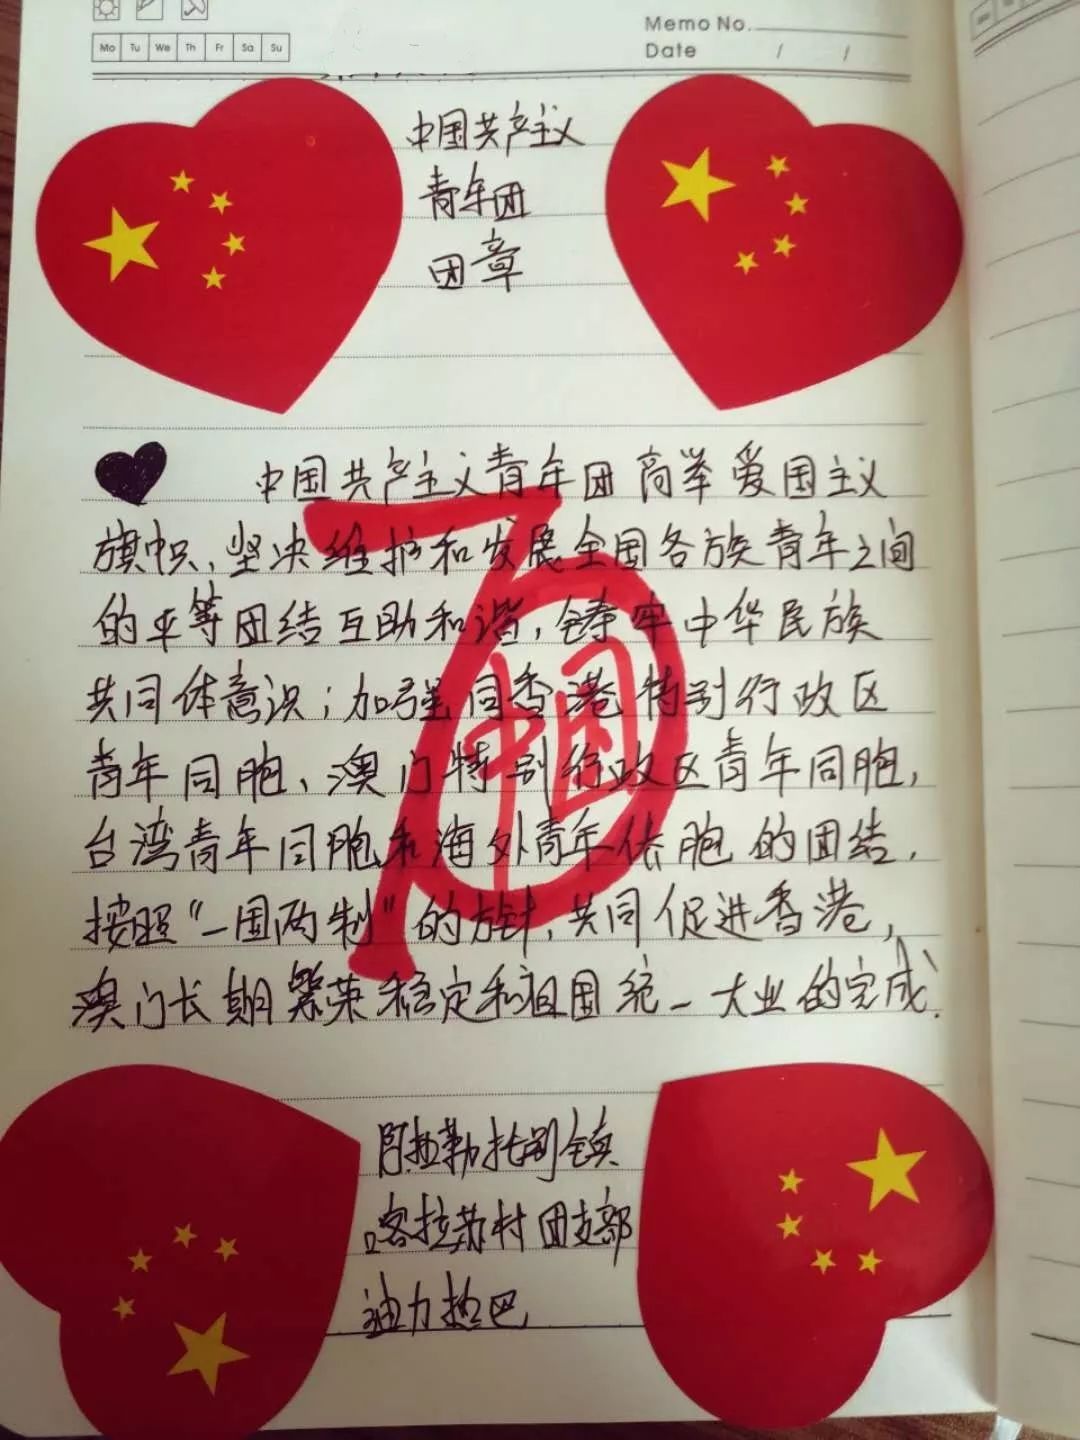 Memo No.
Mo Tu We Th Fr Sa Su
Date / /
中国共产主义
青年团
团章
中国共产主义青年团高举爱国主义
旗帜、坚决维护和发展全国各族青年之间
的平等团结互助和谐,铸牢中华民族
共同体意识;加强同香港特别行政区
青年同胞、澳门特别行政区青年同胞,
台湾青年同胞和海外青年侨胞的团结,
按照“一国两制”的方针,共同促进香港,
澳门长期繁荣稳定和祖国统一大业的完成.
70
中国
阿拉勒托别镇
喀拉苏村团支部
迪力热巴